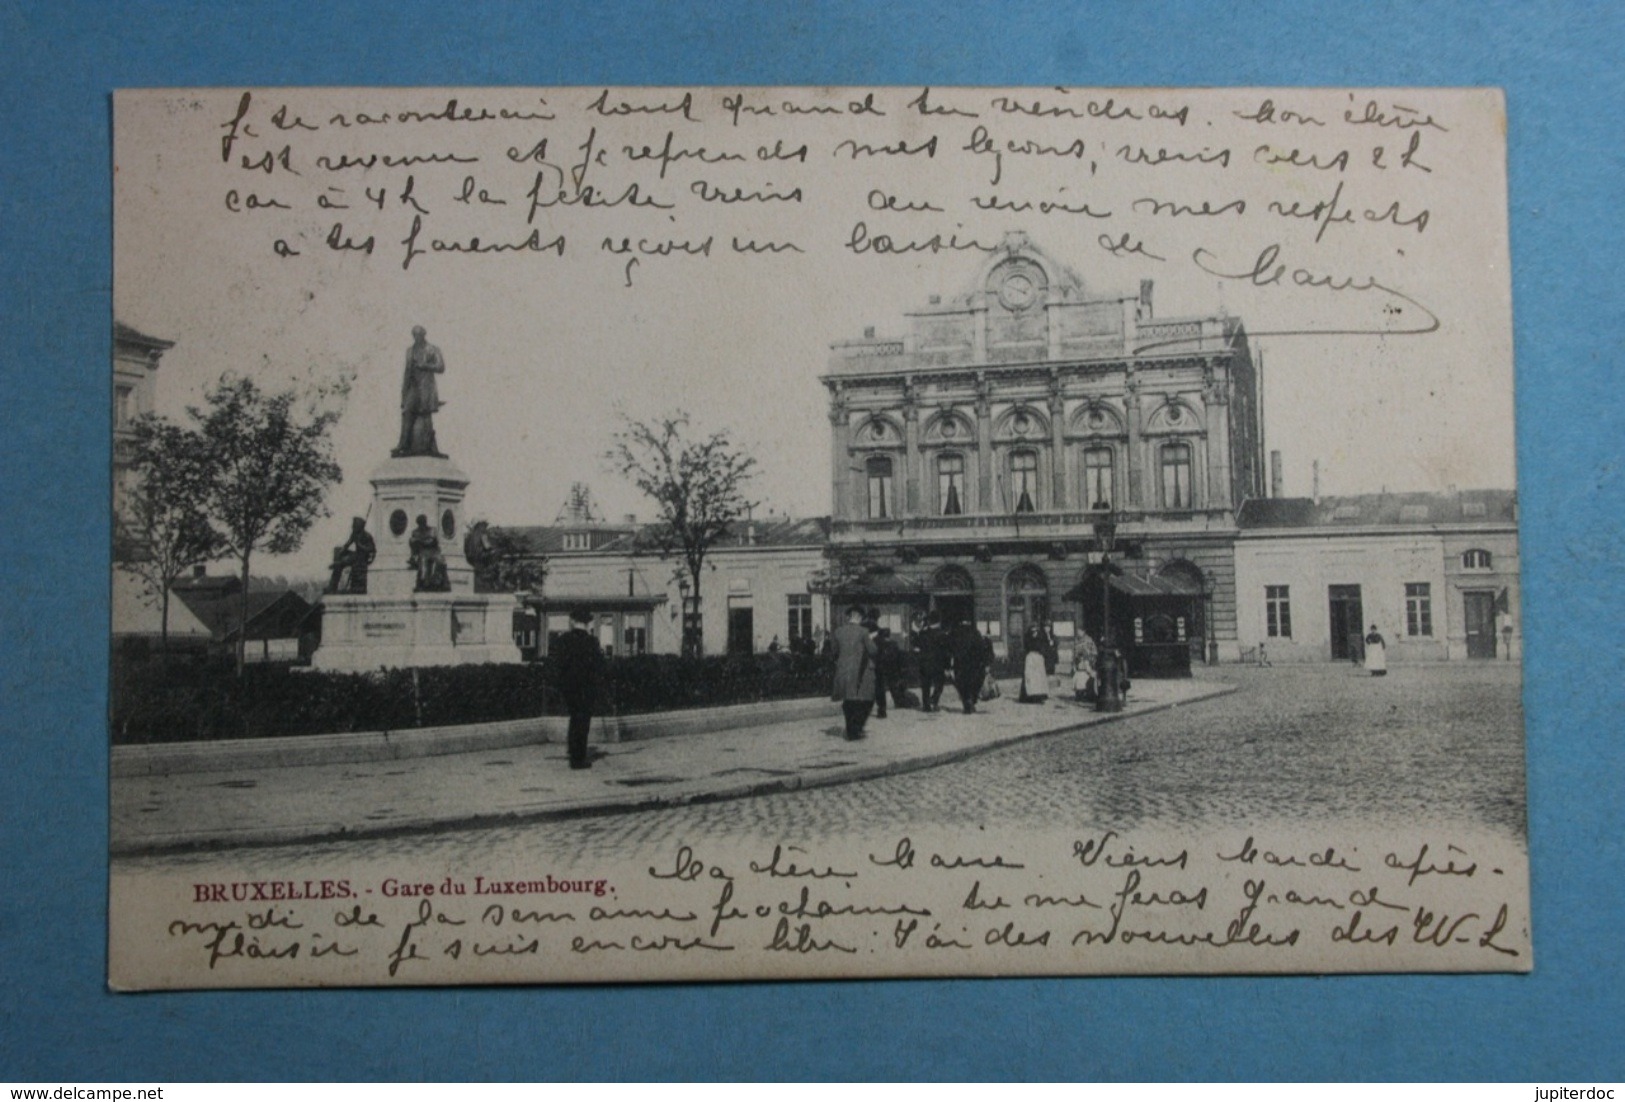 Je te raconterai tout quand tu viendras. Mon élève
est revenu et je reprends mes leçons, viens vers 2 h
car à 4 h la petite viens au revoir mes respects
à tes parents reçois un baiser de Marie
Ma chère Marie Viens Mardi après-
BRUXELLES. - Gare du Luxembourg.
midi de la semaine prochaine tu me feras grand
plaisir je suis encore libre. J'ai des nouvelles des W-L
delcampe.net
jupiterdoc